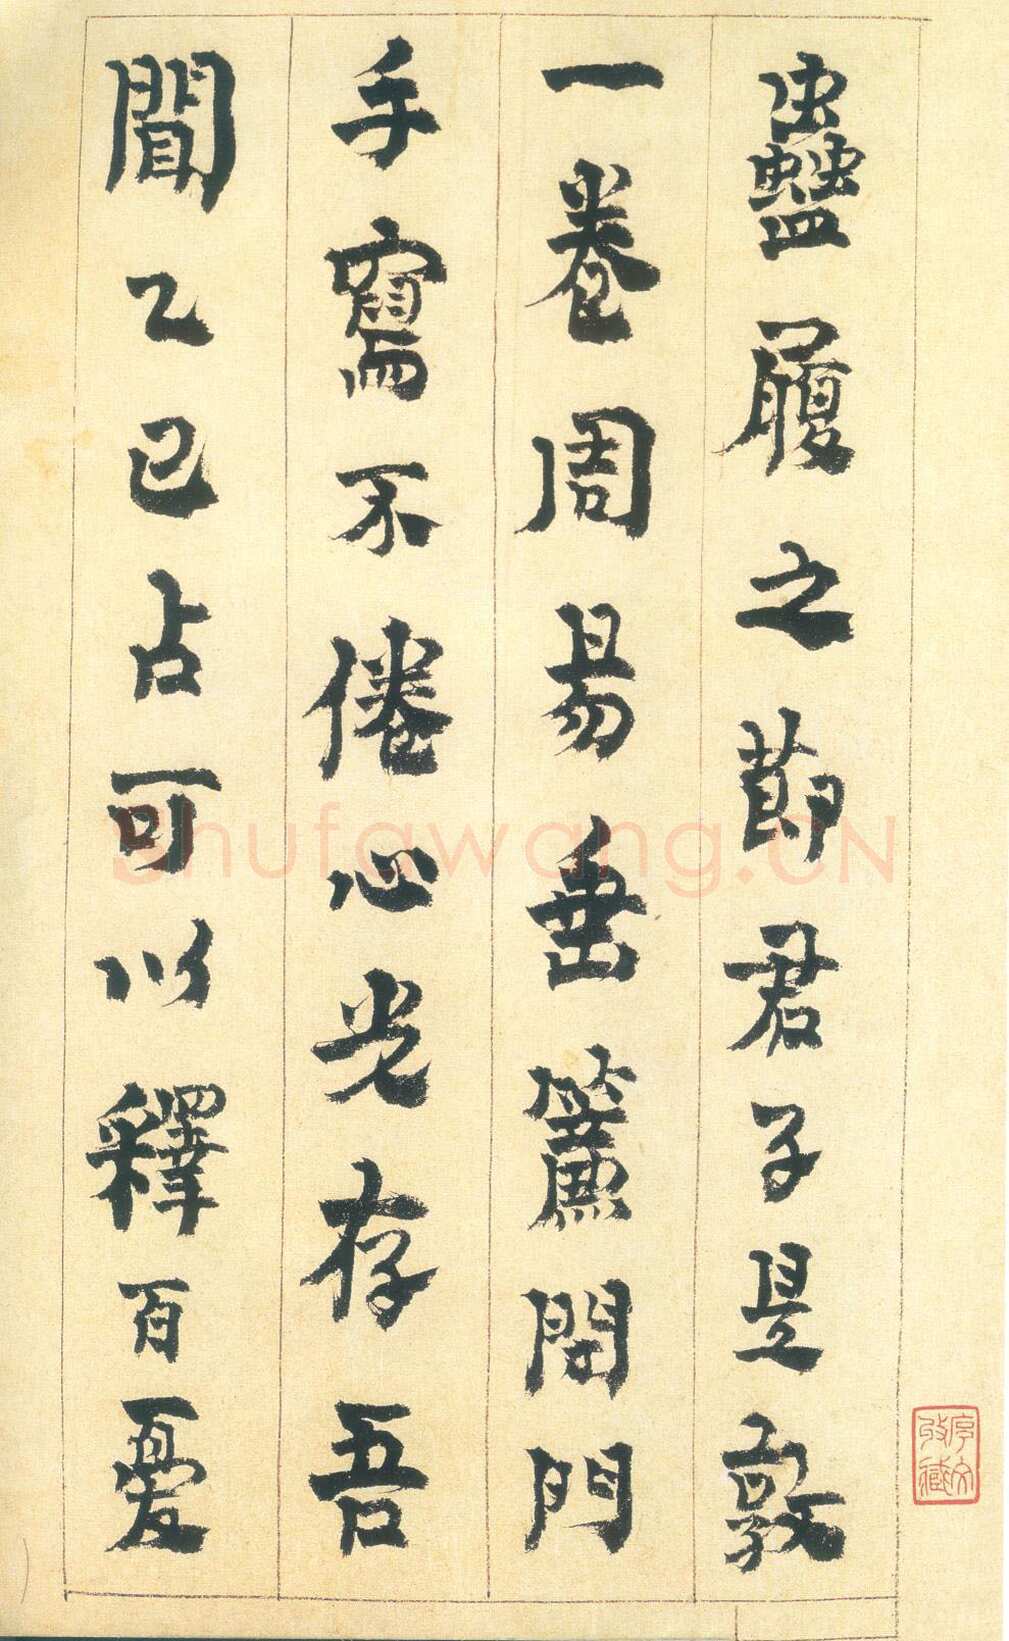 蠱履之節君子是敦
一卷周易垂簾閉門
手寫不倦心光存吾
聞乙巳占可以釋百憂
Shufawang.CN